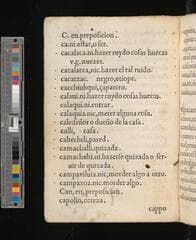 C. en. preposicion.
ca. ni. estar, o ser.
cacalaca. ni. hazer ruydo cosas huecas
v.g. nuezes.
cacalatza, nic. hazer el tal ruido.
cacatzac. negro, etiope.
cacchiuhqui, çapatero.
calani. ni. hazer ruydo cosas huecas.
calaqui. ni. entrar.
calaquia. nic, meter alguna cosa.
caleseñor o dueño de la casa.
calli, casa.
caltechtli, pared.
camachalli. quixada.
camachalti. ni. hazerse quixada o ser
uir de quixada.
campaxilhuia, nic, morder algo a otro.
campaxoa. nic. morder algo.
Can. en. preposicion.
capolin, cereza.
cappo